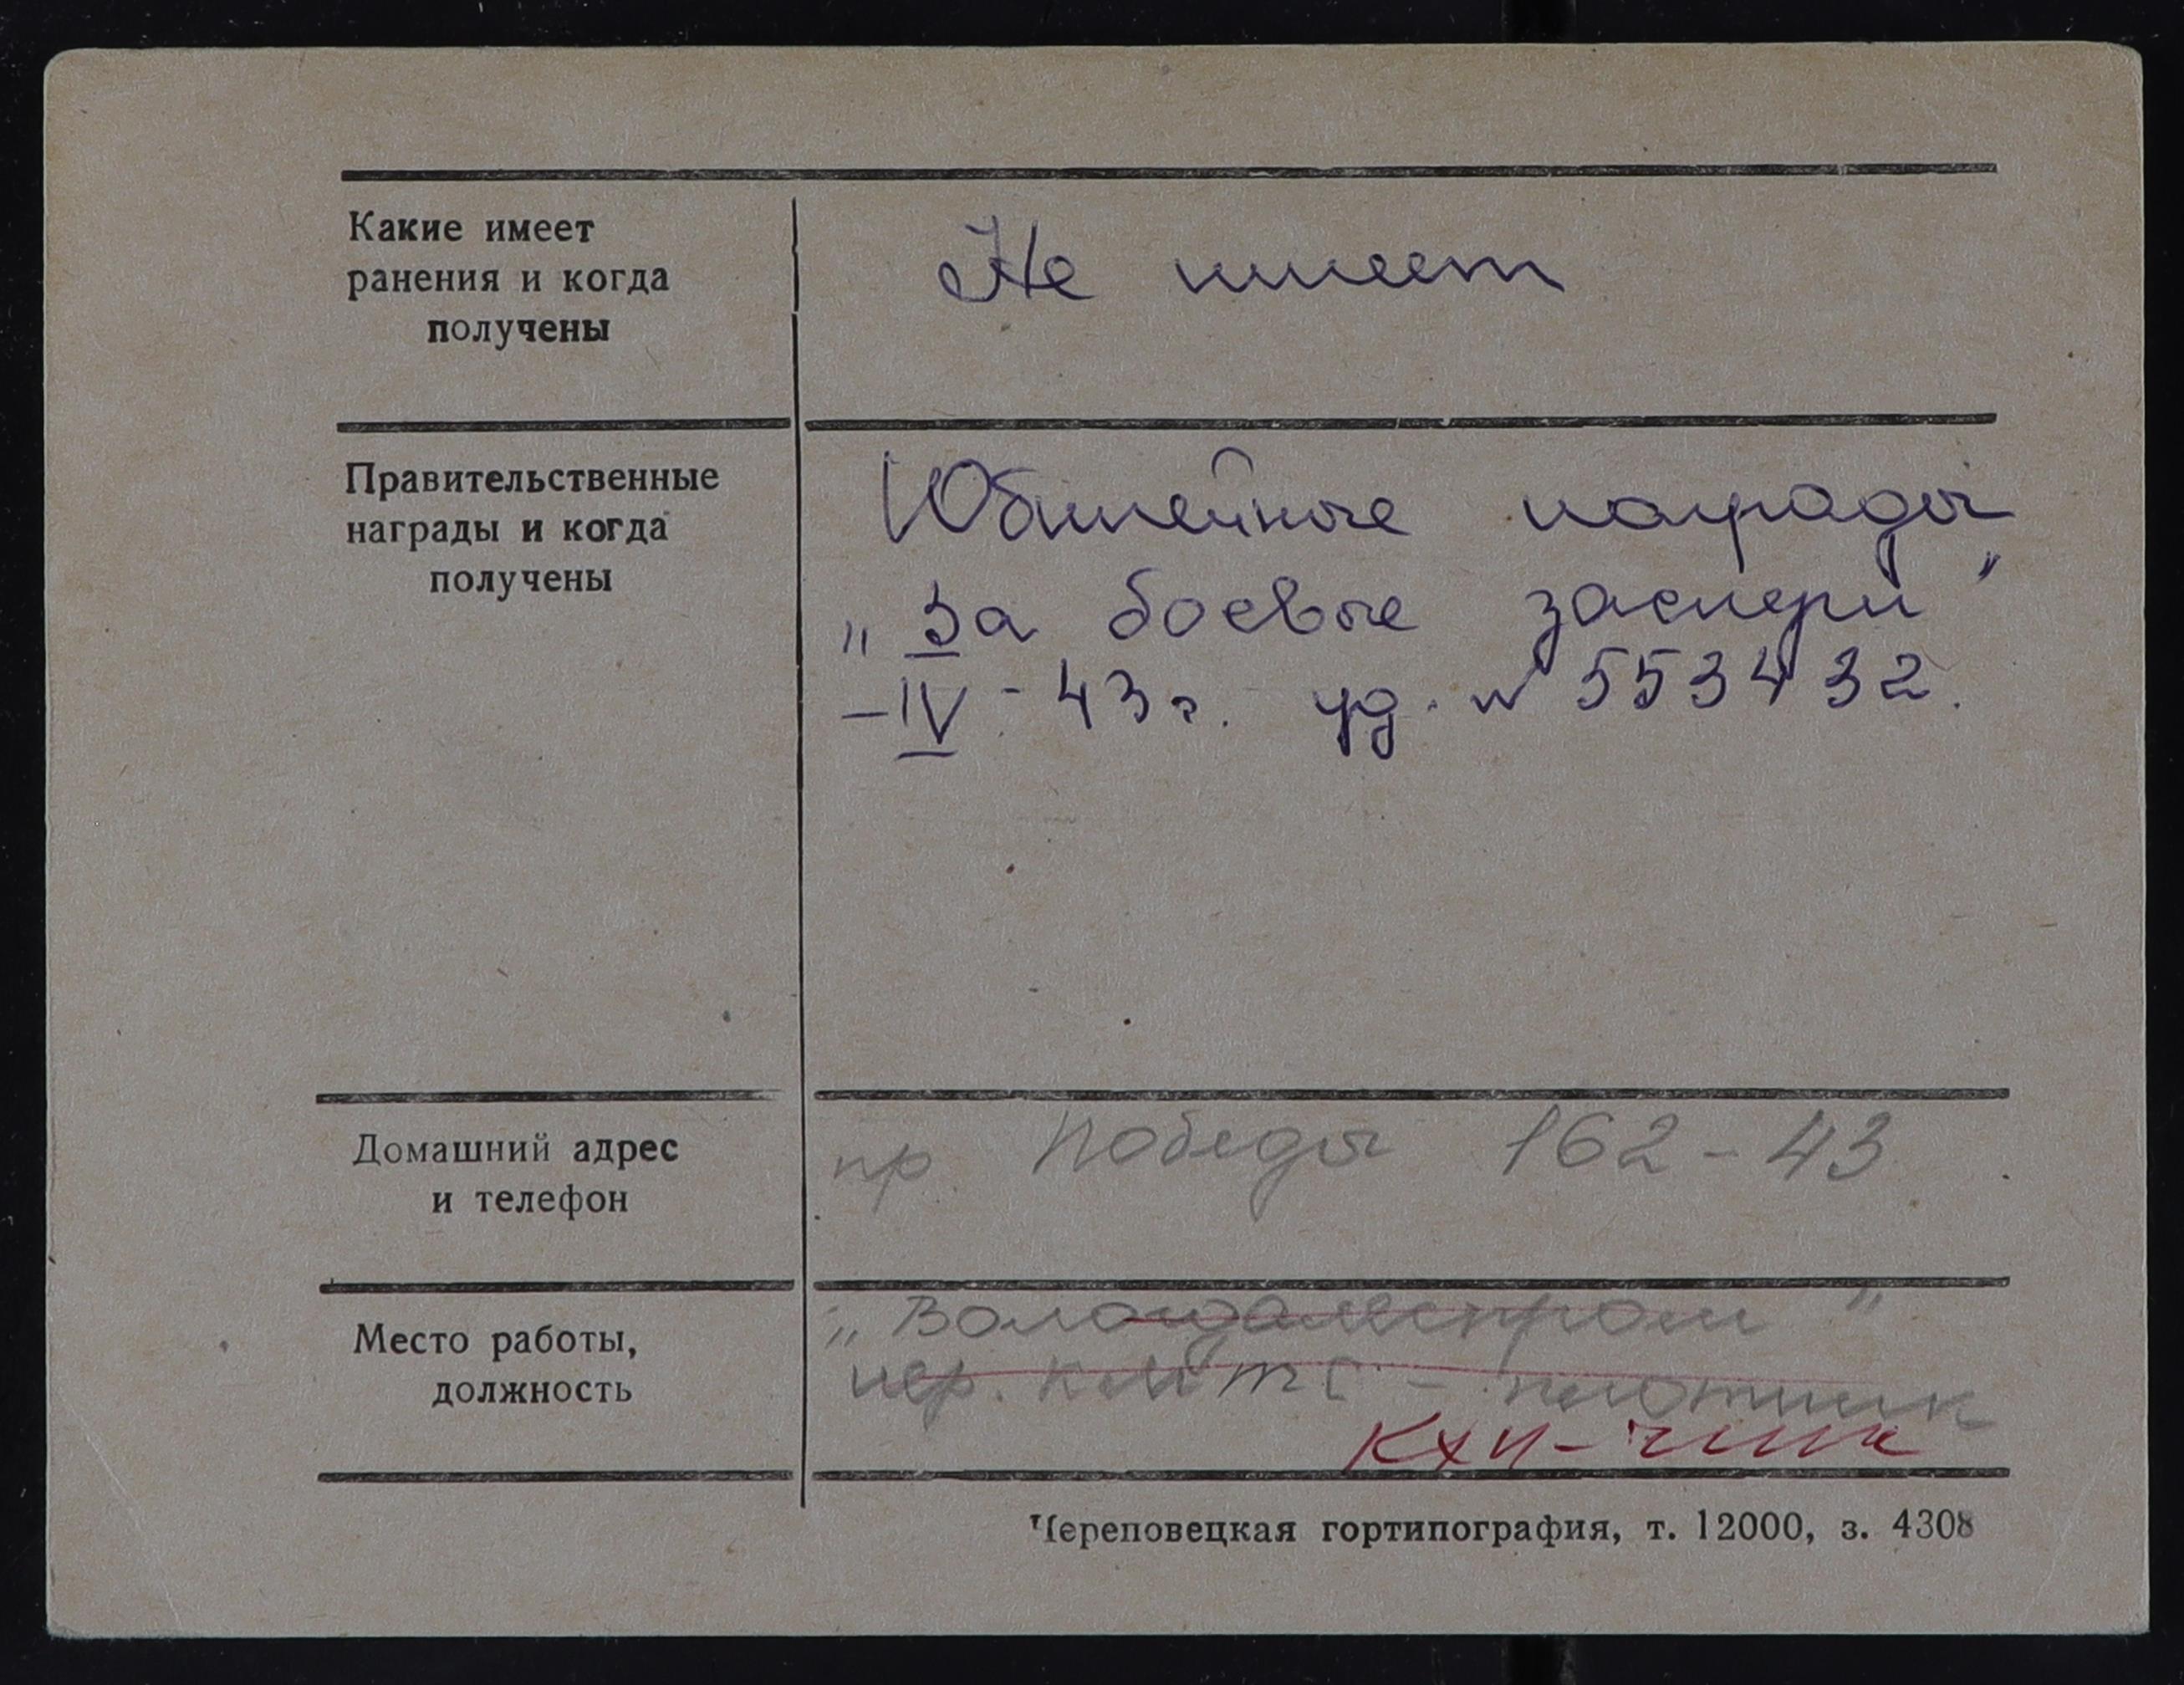 Какие имеет
ранения и когда
получены
Не имеет
Правительственные
награды и когда
получены
Юбилейные награды
„За боевые заслуги"
–IV - 43г. уд. № 553432.
Домашний адрес
и телефон
пр. Победы 162-43
Место работы,
должность
„Вологдалеспром"
чер. - плотник
Череповецкая гортипография, т. 12000, з. 4308